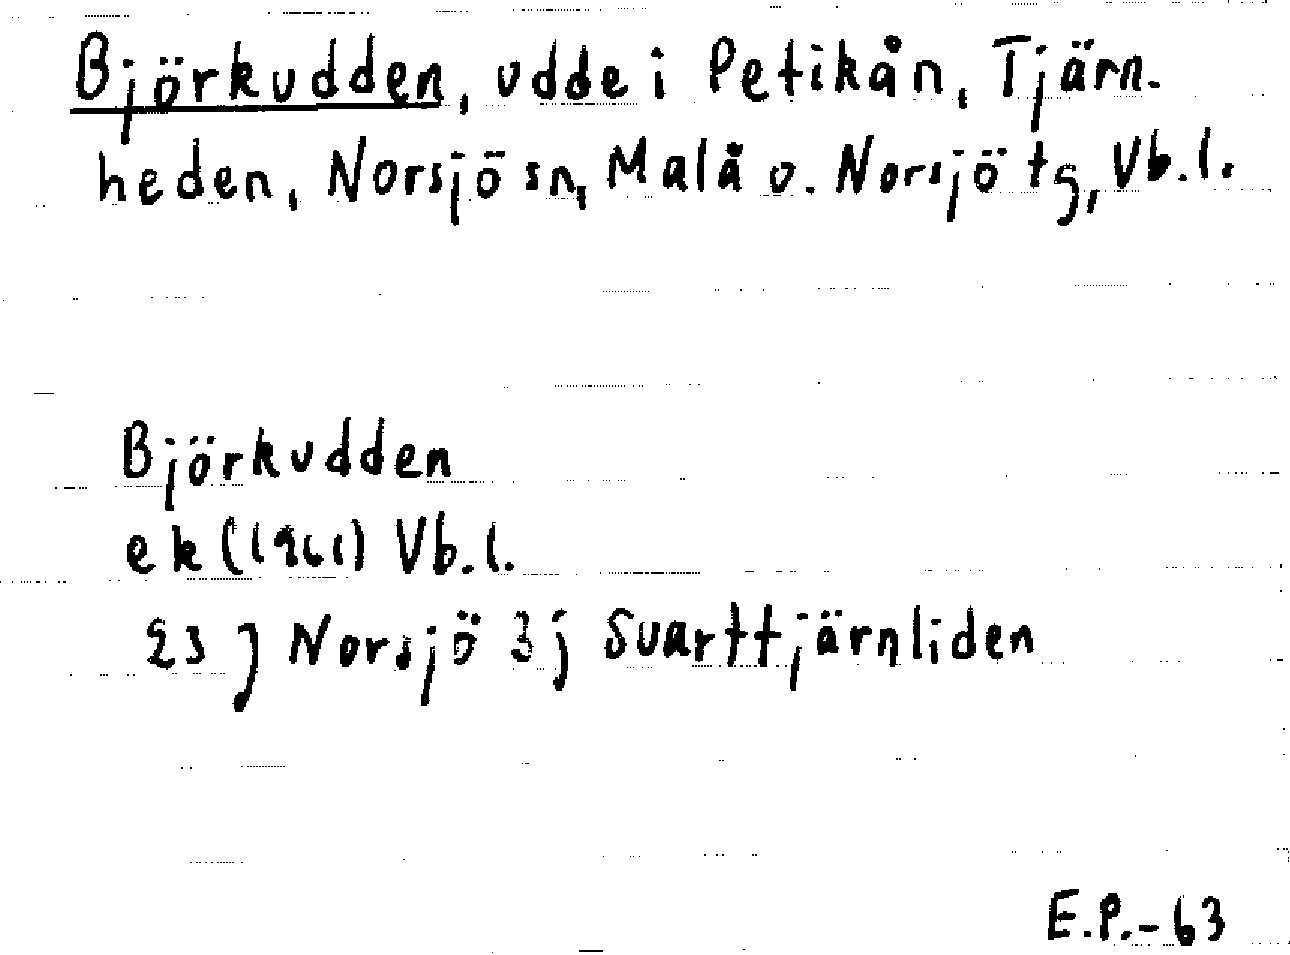 Björkudden, udde i Petikån, Tjärn-
heden, Norsjö sn, Malå o. Norsjö tg, Vb.l.
Björkudden
ek (1961) Vb.l.
23 J Norsjö 3j Svarttjärnliden
E.P.-63